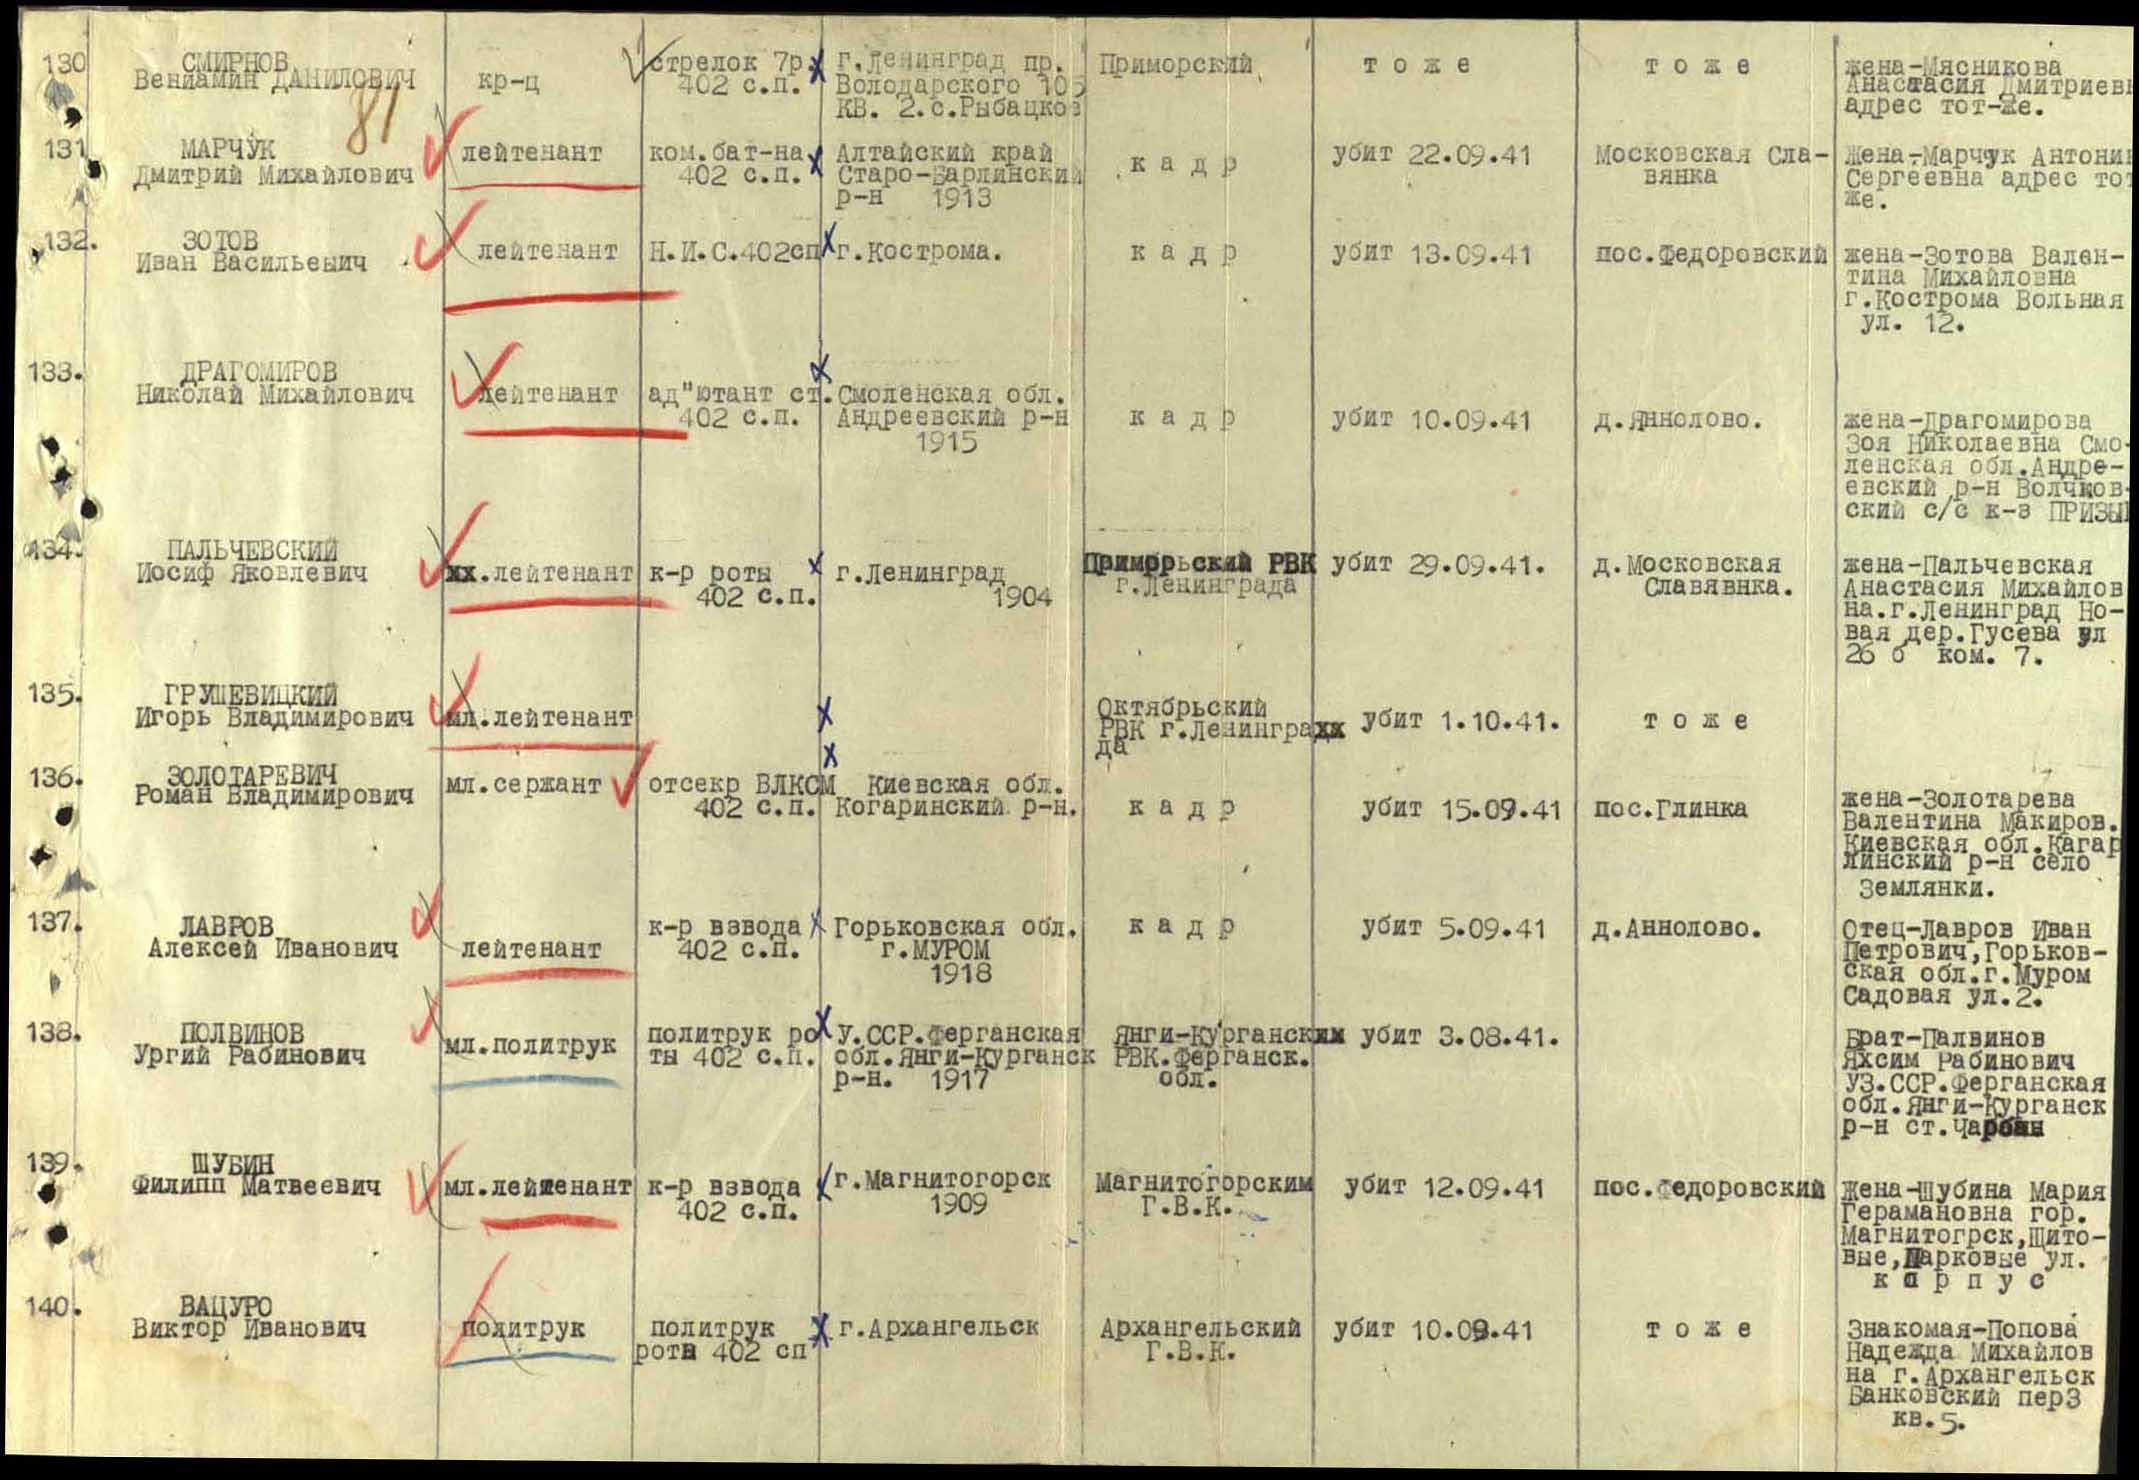 130
СМИРНОВ
Вениамин ДАНИЛОВИЧ
кр-ц
стрелок 7р.
402 с.п.
г.Ленинград пр.
Володарского 105
КВ. 2.с.Рыбацкое
Приморский
т о ж е
т о ж е
жена-Мясникова
Анастасия Дмитриевн
адрес тот-же.
81
131
МАРЧУК
Дмитрий Михайлович
лейтенант
ком.бат-на
402 с.п.
Алтайский край
Старо-Барлинский
р-н 1913
к а д р
убит 22.09.41
Московская Сла-
вянка
Жена-Марчук Антонин
Сергеевна адрес тот
же.
132.
ЗОТОВ
Иван Васильевич
лейтенант
Н.И.С.402сп
г.Кострома.
к а д р
убит 13.09.41
пос.Федоровский
жена-Зотова Вален-
тина Михайловна
г.Кострома Вольная
ул. 12.
133.
ДРАГОМИРОВ
Николай Михайлович
лейтенант
ад"ютант ст.
402 с.п.
Смоленская обл.
Андреевский р-н
1915
к а д р
убит 10.09.41
д.Яннолово.
жена-Драгомирова
Зоя Николаевна Смо-
ленская обл.Андре-
евский р-н Волчков-
ский с/с к-з ПРИЗЫ
134.
ПАЛЬЧЕВСКИЙ
Иосиф Яковлевич
хх.лейтенант
к-р роты
402 с.п.
г.Ленинград
1904
Приморьский РВК
г.Ленинграда
убит 29.09.41.
д.Московская
Славявнка.
жена-Пальчевская
Анастасия Михайлов
на.г.Ленинград Но-
вая дер.Гусева ул
26 б ком. 7.
135.
ГРУШЕВИЦКИЙ
Игорь Владимирович
мл.лейтенант
Октябрьский
РВК г.Ленинграхх
да
убит 1.10.41.
т о ж е
136.
ЗОЛОТАРЕВИЧ
Роман Владимирович
мл.сержант
отсекр ВЛКСМ
402 с.п.
Киевская обл.
Когаринский р-н.
к а д р
убит 15.09.41
пос.Глинка
жена-Золотарева
Валентина Макиров.
Киевская обл.Кагар
линский р-н село
Землянки.
137.
ЛАВРОВ
Алексей Иванович
лейтенант
к-р взвода
402 с.п.
Горьковская обл.
г.МУРОМ
1918
к а д р
убит 5.09.41
д.Аннолово.
Отец-Лавров Иван
Петрович,Горьков-
ская обл.г.Муром
Садовая ул.2.
138.
ПОЛВИНОВ
Ургий Рабинович
мл.политрук
политрук ро
ты 402 с.п.
У.ССР.Ферганская
обл.Янги-Курганск
р-н. 1917
Янги-Курганским
РВК.Ферганск.
обл.
убит 3.08.41.
Брат-Палвинов
Яхсим Рабинович
УЗ.ССР.Ферганская
обл.Янги-Курганск
р-н ст.
139.
ШУБИН
Филипп Матвеевич
мл.лейтенант
к-р взвода
402 с.п.
г.Магнитогорск
1909
Магнитогорским
Г.В.К.
убит 12.09.41
пос.Федоровский
Жена-Шубина Мария
Герамановна гор.
Магнитогрск,Щито-
вые,Парковые ул.
к о р п у с
140.
ВАЦУРО
Виктор Иванович
политрук
политрук
роты 402 сп
г.Архангельск
Архангельский
Г.В.К.
убит 10.09.41
т о ж е
Знакомая-Попова
Надежда Михайлов
на г.Архангельск
Банковский пер3
кв.5.